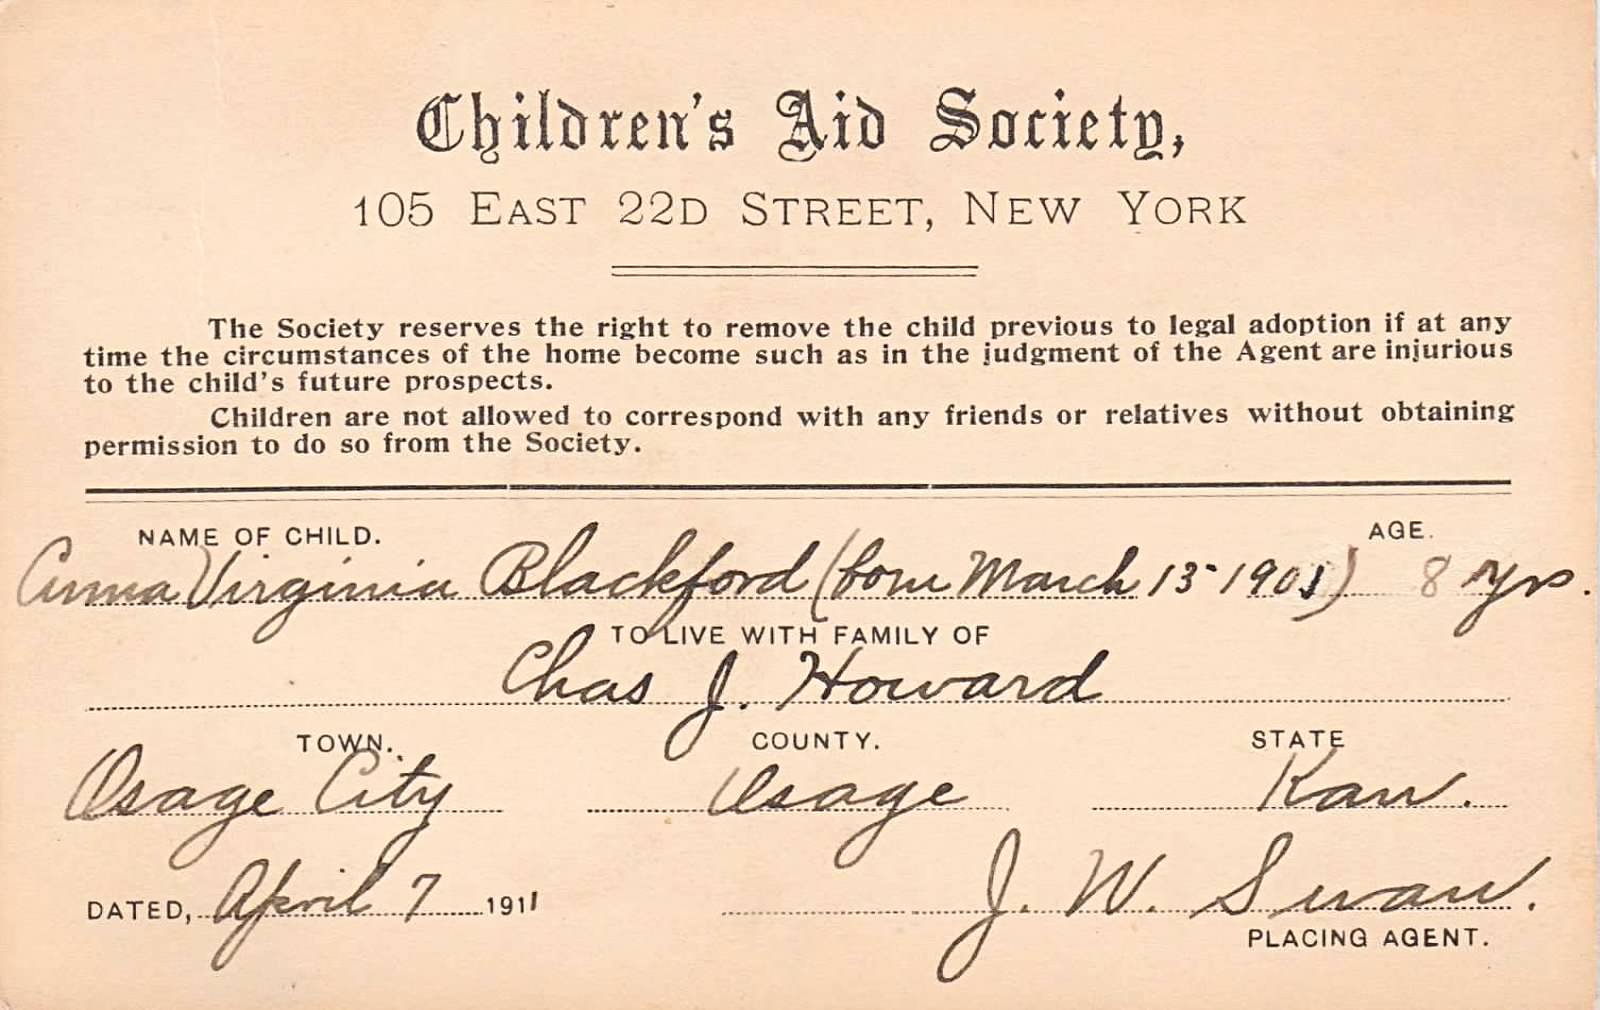 Children's Aid Society,
105 EAST 22D STREET, NEW YORK
The Society reserves the right to remove the child previous to legal adoption if at any
time the circumstances of the home become such as in the judgment of the Agent are injurious
to the child's future prospects.
Children are not allowed to correspond with any friends or relatives without obtaining
permission to do so from the Society.
NAME OF CHILD. AGE.
Anna Virginia Blackford (born March 13-1901) 8 yrs.
TO LIVE WITH FAMILY OF
Chas J. Howard
TOWN. COUNTY. STATE
Osage City Osage Kan.
DATED, April 7 1911 J. W. Swan.
PLACING AGENT.